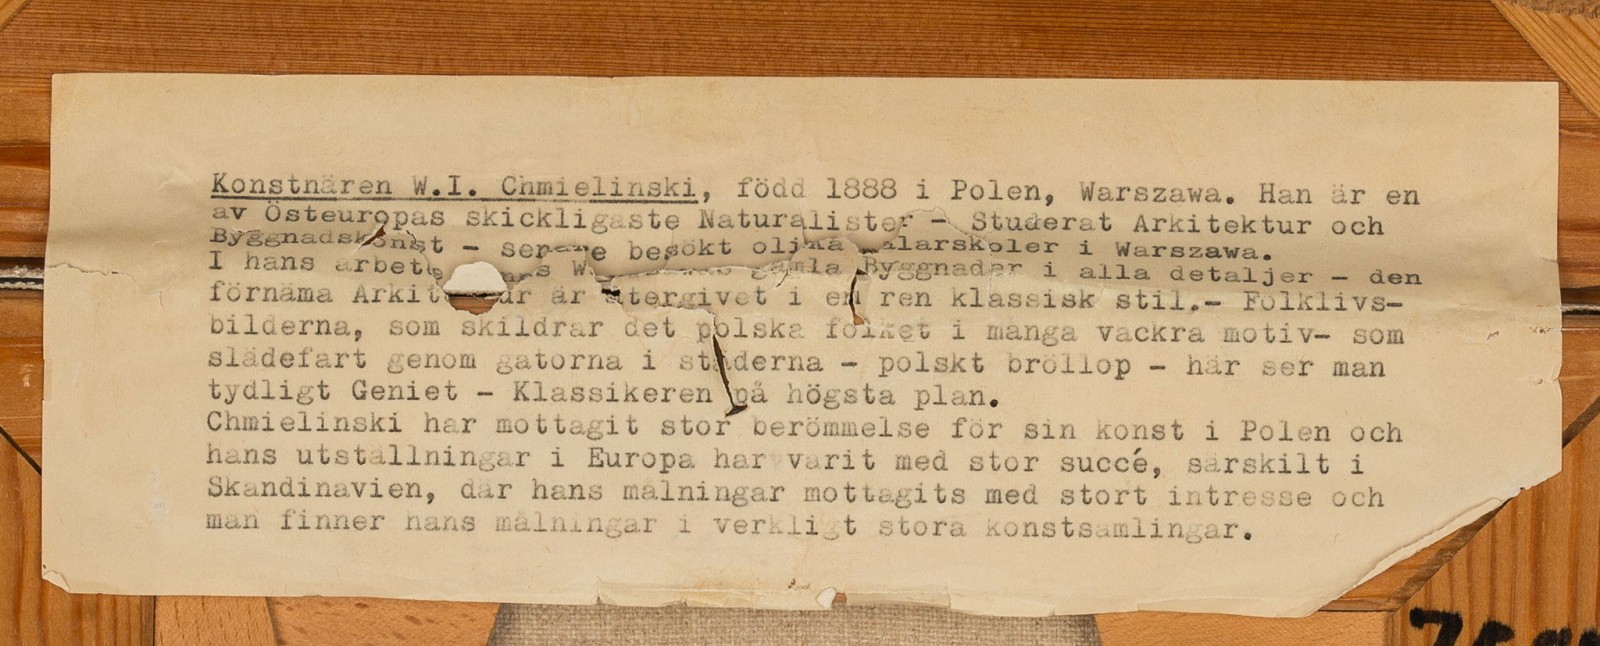 Konstnären W.I. Chmielinski, född 1888 i Polen, Warszawa. Han är en
av Östeuropas skickligaste Naturalister - Studerat Arkitektur och
Byggnadskonst - senare besökt olika målarskoler i Warszawa.
I hans gamla Byggnader i alla detaljer - den
förnäma Arkitektur är återgivet i en ren klassisk stil.- Folklivs-
bilderna, som skildrar det polska folket i många vackra motiv- som
slädefart genom gatorna i städerna - polskt bröllop - här ser man
tydligt Geniet - Klassikeren på högsta plan.
Chmielinski har mottagit stor berömmelse för sin konst i Polen och
hans utställningar i Europa har varit med stor succé, särskilt i
Skandinavien, där hans målningar mottagits med stort intresse och
man finner hans målningar i verkligt stora konstsamlingar.